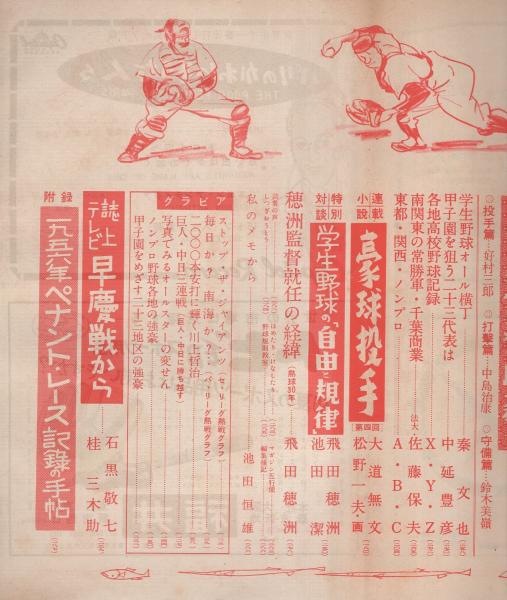 ◎投手篇…好村三郎 ◎打撃篇…中島治康 ◎守備篇…鈴木美嶺
学生野球オール横丁 秦文也
甲子園を狙う二十三代表は 中延豊彦
各地高校野球記録 X・Y・Z
南関東の常勝軍・千葉商業 法大 佐藤保夫
東都・関西・ノンプロ A・B・C
連載小説 豪球投手 第四回 大道無文 松野一夫・画
特別対談 学生野球の「自由と規律」 飛田穂洲 池田潔
穂洲監督就任の経緯(熱球30年) 飛田穂洲
読者の声 ほめたり・けなしたり マガジン五行便
とっておき 野球規則教室 編集後記
私のメモから 池田恒雄
グラビア
ストップ・ザ・ジャイアンツ(セ・リーグ熱戦グラフ)
毎日か?南海か?(パ・リーグ熱戦グラフ)
二〇〇〇本安打に輝く川上哲治
巨人・中日三連戦(巨人・中日に勝ち越す)
写真でみるオールスターの変せん
ノンプロ野球各地の強豪
甲子園をめざす二十三地区の強豪
誌上テレビ 早慶戦から 石黒敬七 桂三木助
附録 一九五六年ペナント・レース記録の手帖